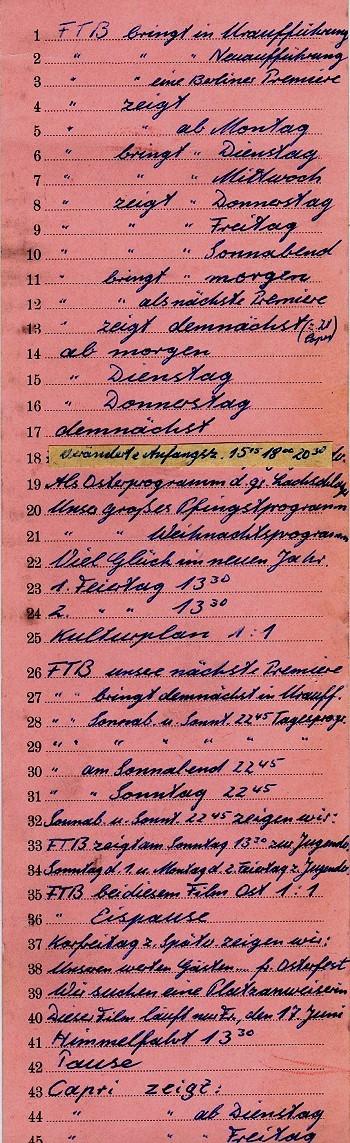 1 FTB bringt in Uraufführung
2 " " " Neuaufführung
3 " " eine Berliner Premiere
4 " zeigt
5 " " ab Montag
6 " bringt " Dienstag
7 " " " Mittwoch
8 " zeigt " Donnerstag
9 " " " Freitag
10 " " " Sonnabend
11 " bringt " morgen
12 " " als nächste Premiere
13 " zeigt demnächst
14 ab morgen
15 " Dienstag
16 " Donnerstag
17 demnächst
18 Veränderte Anfangsz. 15 18 20 30
19 Als Osterprogramm d. gr.
20 Unser großes Pfingstprogramm
21 " " Weihnachtsprogramm
22 Viel Glück im neuen Jahr
23 1. Feiertag 13 30
24 2. " " 13 30
25 Kulturplan 1:1
26 FTB unsere nächste Premiere
27 " " bringt demnächst in Urauff.
28 " " Sonnab. u. Sonnt 22 45 Tagesprogr.
29 " " " " " " "
30 " am Sonnabend 22 45
31 " " Sonntag 22 45
32 Sonnab. u. Sonnt 22 45 zeigen wir:
33 FTB zeigt am Sonntag 13 30 zur Jugendv.
34 Sonntag d. 1. u. Montag d. 2. Feiertag z. Jugendv.
35 FTB bei diesem Film Ost 1:1
36 " Eispause
37 Karfreitag z. Spätv. zeigen wir:
38 Unseren werten Gästen f. Osterfest
39 Wir suchen eine Platzanweiserin
40 Dieser Film läuft nur Fr., den 17. Juni
41 Himmelfahrt 13 30
42 Pause
43 Capri zeigt:
44 " " ab Dienstag
45 " " " Freitag